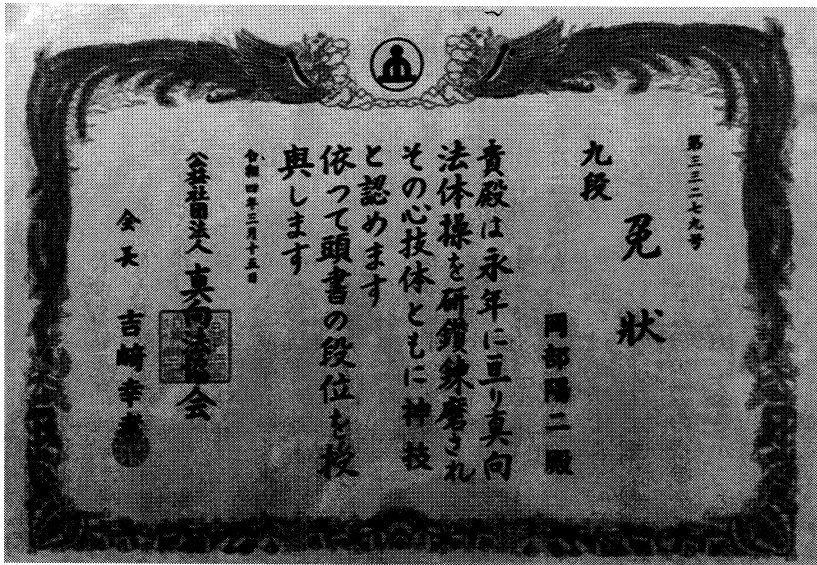 第三三二七九号
免状
九段
岡部陽二殿
貴殿は永年に亘り真向
法体操を研鑽錬磨され
その心技体ともに神技
と認めます
依って頭書の段位を授
與します
令和四年三月十五日
公益社団法人 真向法協会
会長 吉崎幸